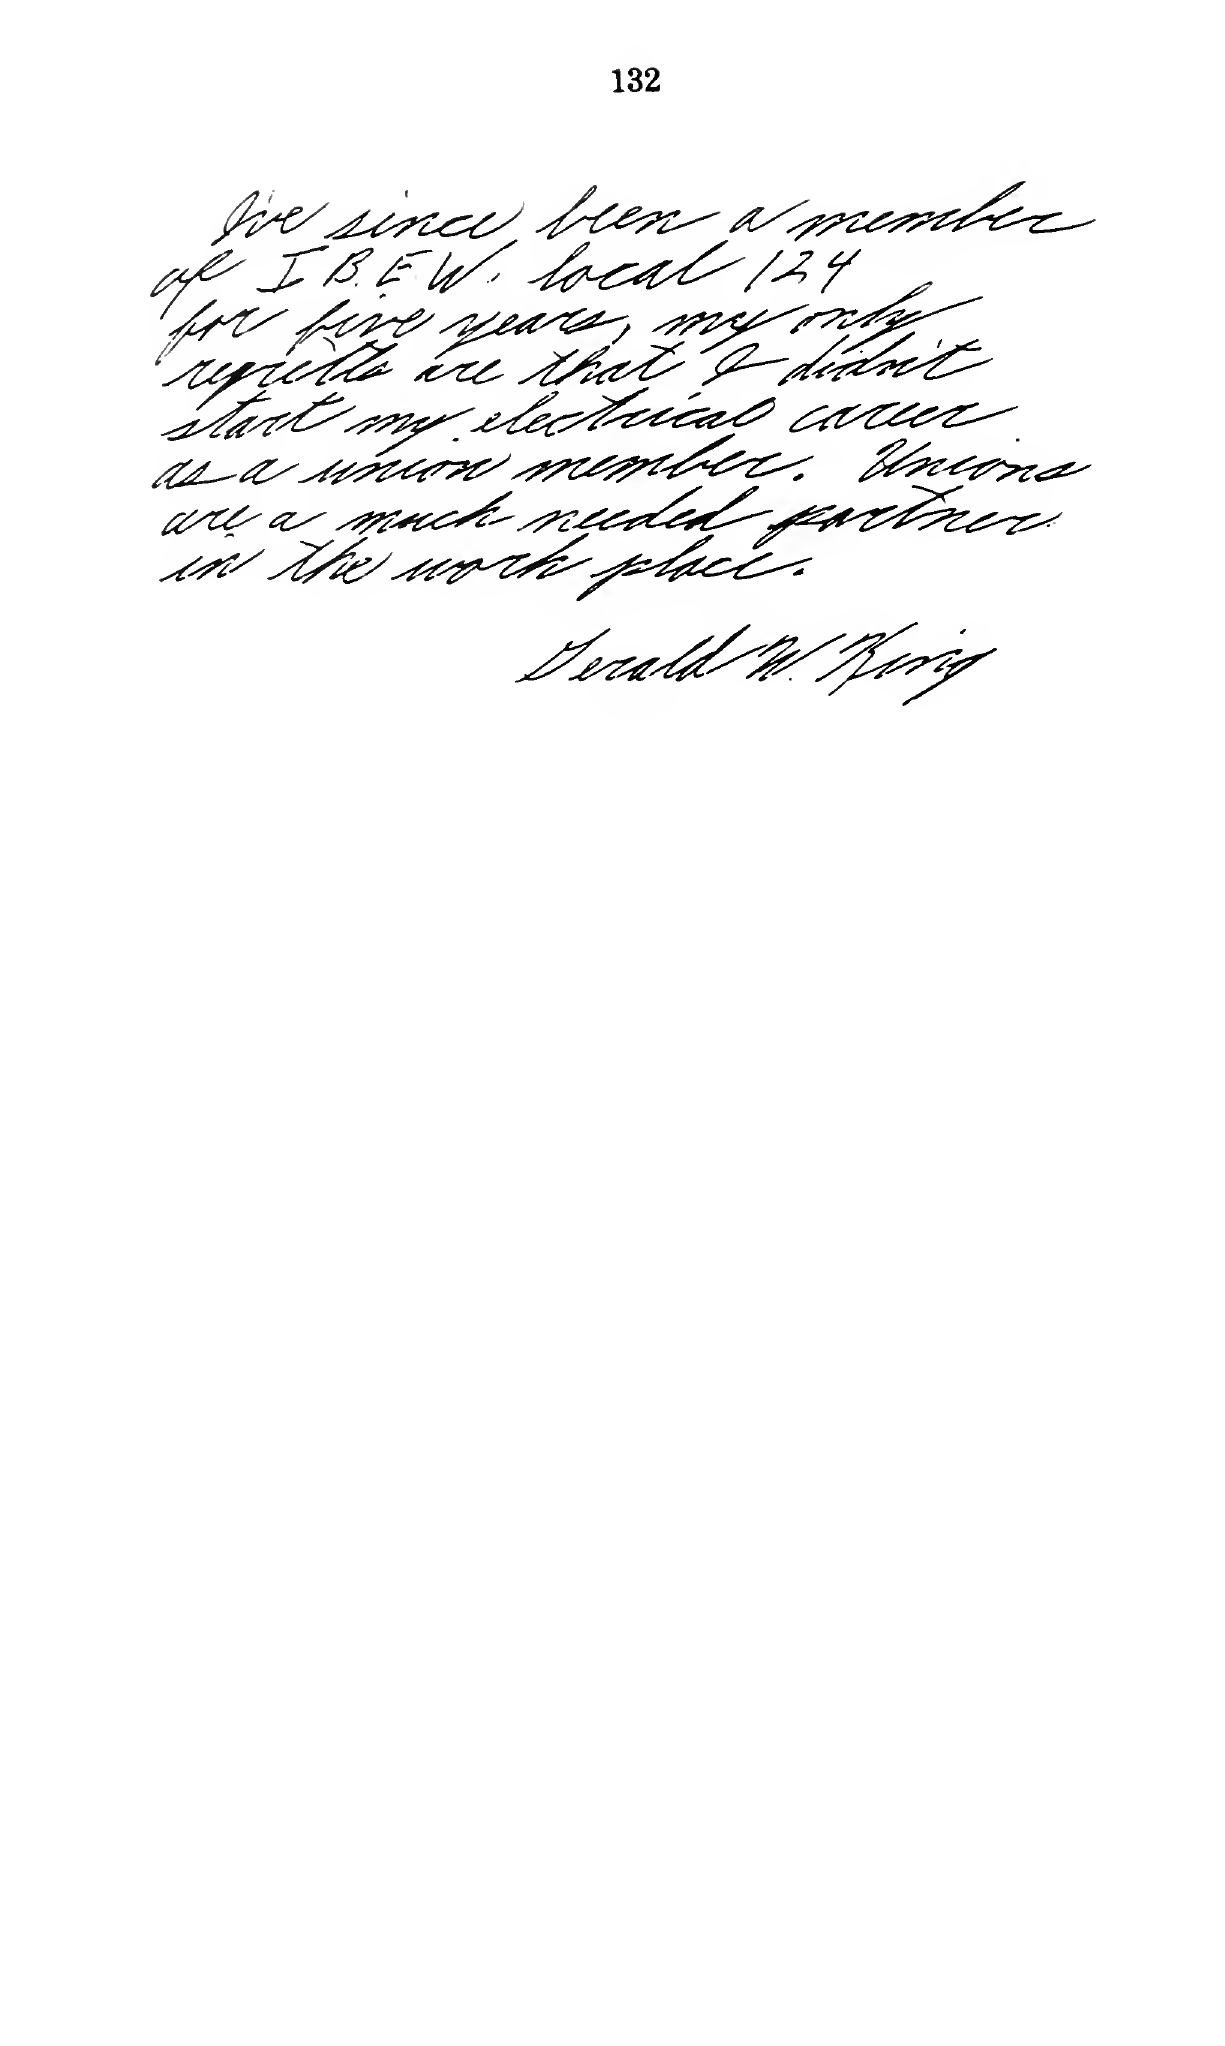 132
I've since been a member
of I.B.E.W. local 124
for five years, my only
regretts are that I didn't
start my electrical career
as a union member. Unions
are a much needed partner
in the work place.
Gerald W. King